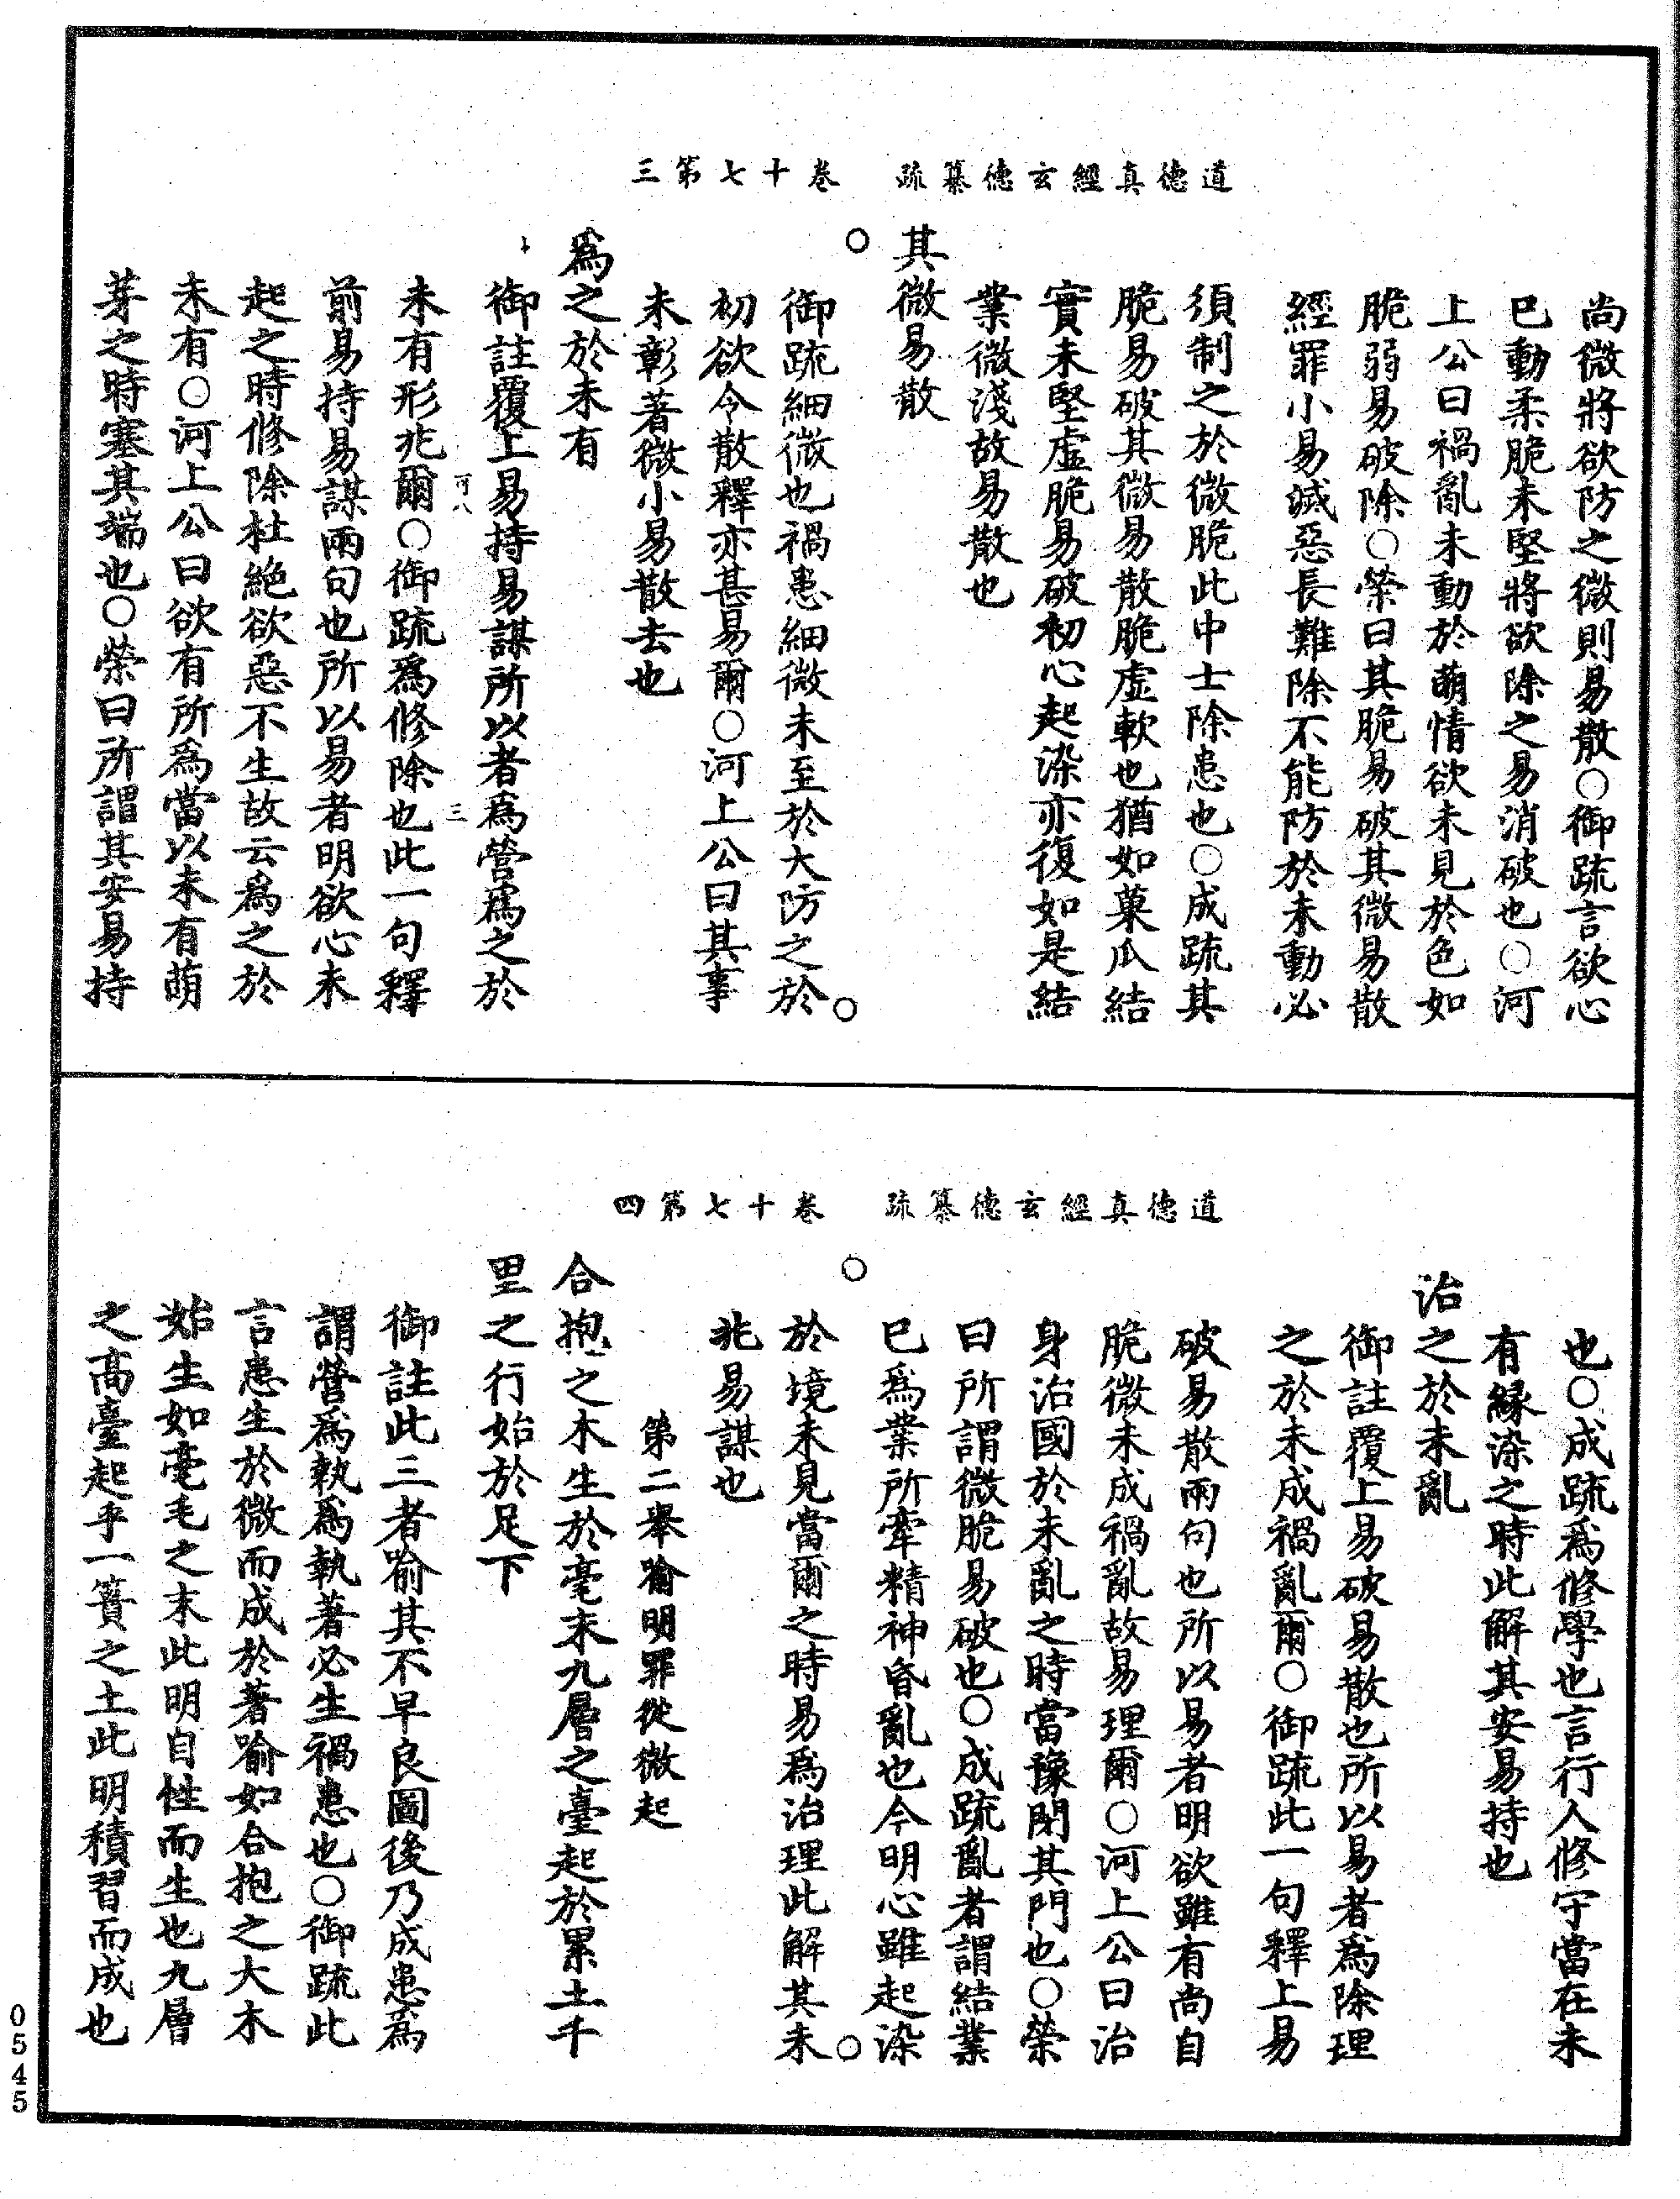 道德真經玄德纂疏　卷十七第三
尚微將欲防之微則易散○御疏言欲心
已動柔脆未堅將欲除之易消破也○河
上公曰禍亂未動於萌情欲未見於色如
脆弱易破除○榮曰其脆易破其微易散
經罪小易滅惡長難除不能防於未動必
須制之於微脆此中士除患也○成疏其
脆易破其微易散脆虛軟也猶如菓瓜結
實未堅虛脆易破初心起染亦復如是結
業微淺故易散也
其微易散
御疏細微也禍患細微未至於大防之於
初欲令散釋亦甚易爾○河上公曰其事
未彰著微小易散去也
爲之於未有
御註覆上易持易謀所以者爲營爲之於
可八　三
未有形兆爾○御疏爲修除也此一句釋
前易持易謀兩句也所以易者明欲心未
起之時修除杜絕欲惡不生故云爲之於
未有○河上公曰欲有所爲當以未有萌
芽之時塞其端也○榮曰所謂其安易持
道德真經玄德纂疏　卷十七第四
也○成疏爲修學也言行人修守當在未
有緣染之時此解其安易持也
治之於未亂
御註覆上易破易散也所以易者爲除理
之於未成禍亂爾○御疏此一句釋上易
破易散兩句也所以易者明欲雖有尚自
脆微未成禍亂故易理爾○河上公曰治
身治國於未亂之時當豫閉其門也○榮
曰所謂微脆易破也○成疏亂者謂結業
已爲業所牽精神昏亂也今明心雖起染
於境未見當爾之時易爲治理此解其未
兆易謀也
第二舉喻明罪從微起
合抱之木生於毫末九層之臺起於累土千
里之行始於足下
御註此三者喻其不早良圖後乃成患爲
謂營爲執爲執著必生禍患也○御疏此
言患生於微而成於著喻如合抱之大木
始生如毫毛之末此明自性而生也九層
之高臺起乎一簣之土此明積習而成也
0545